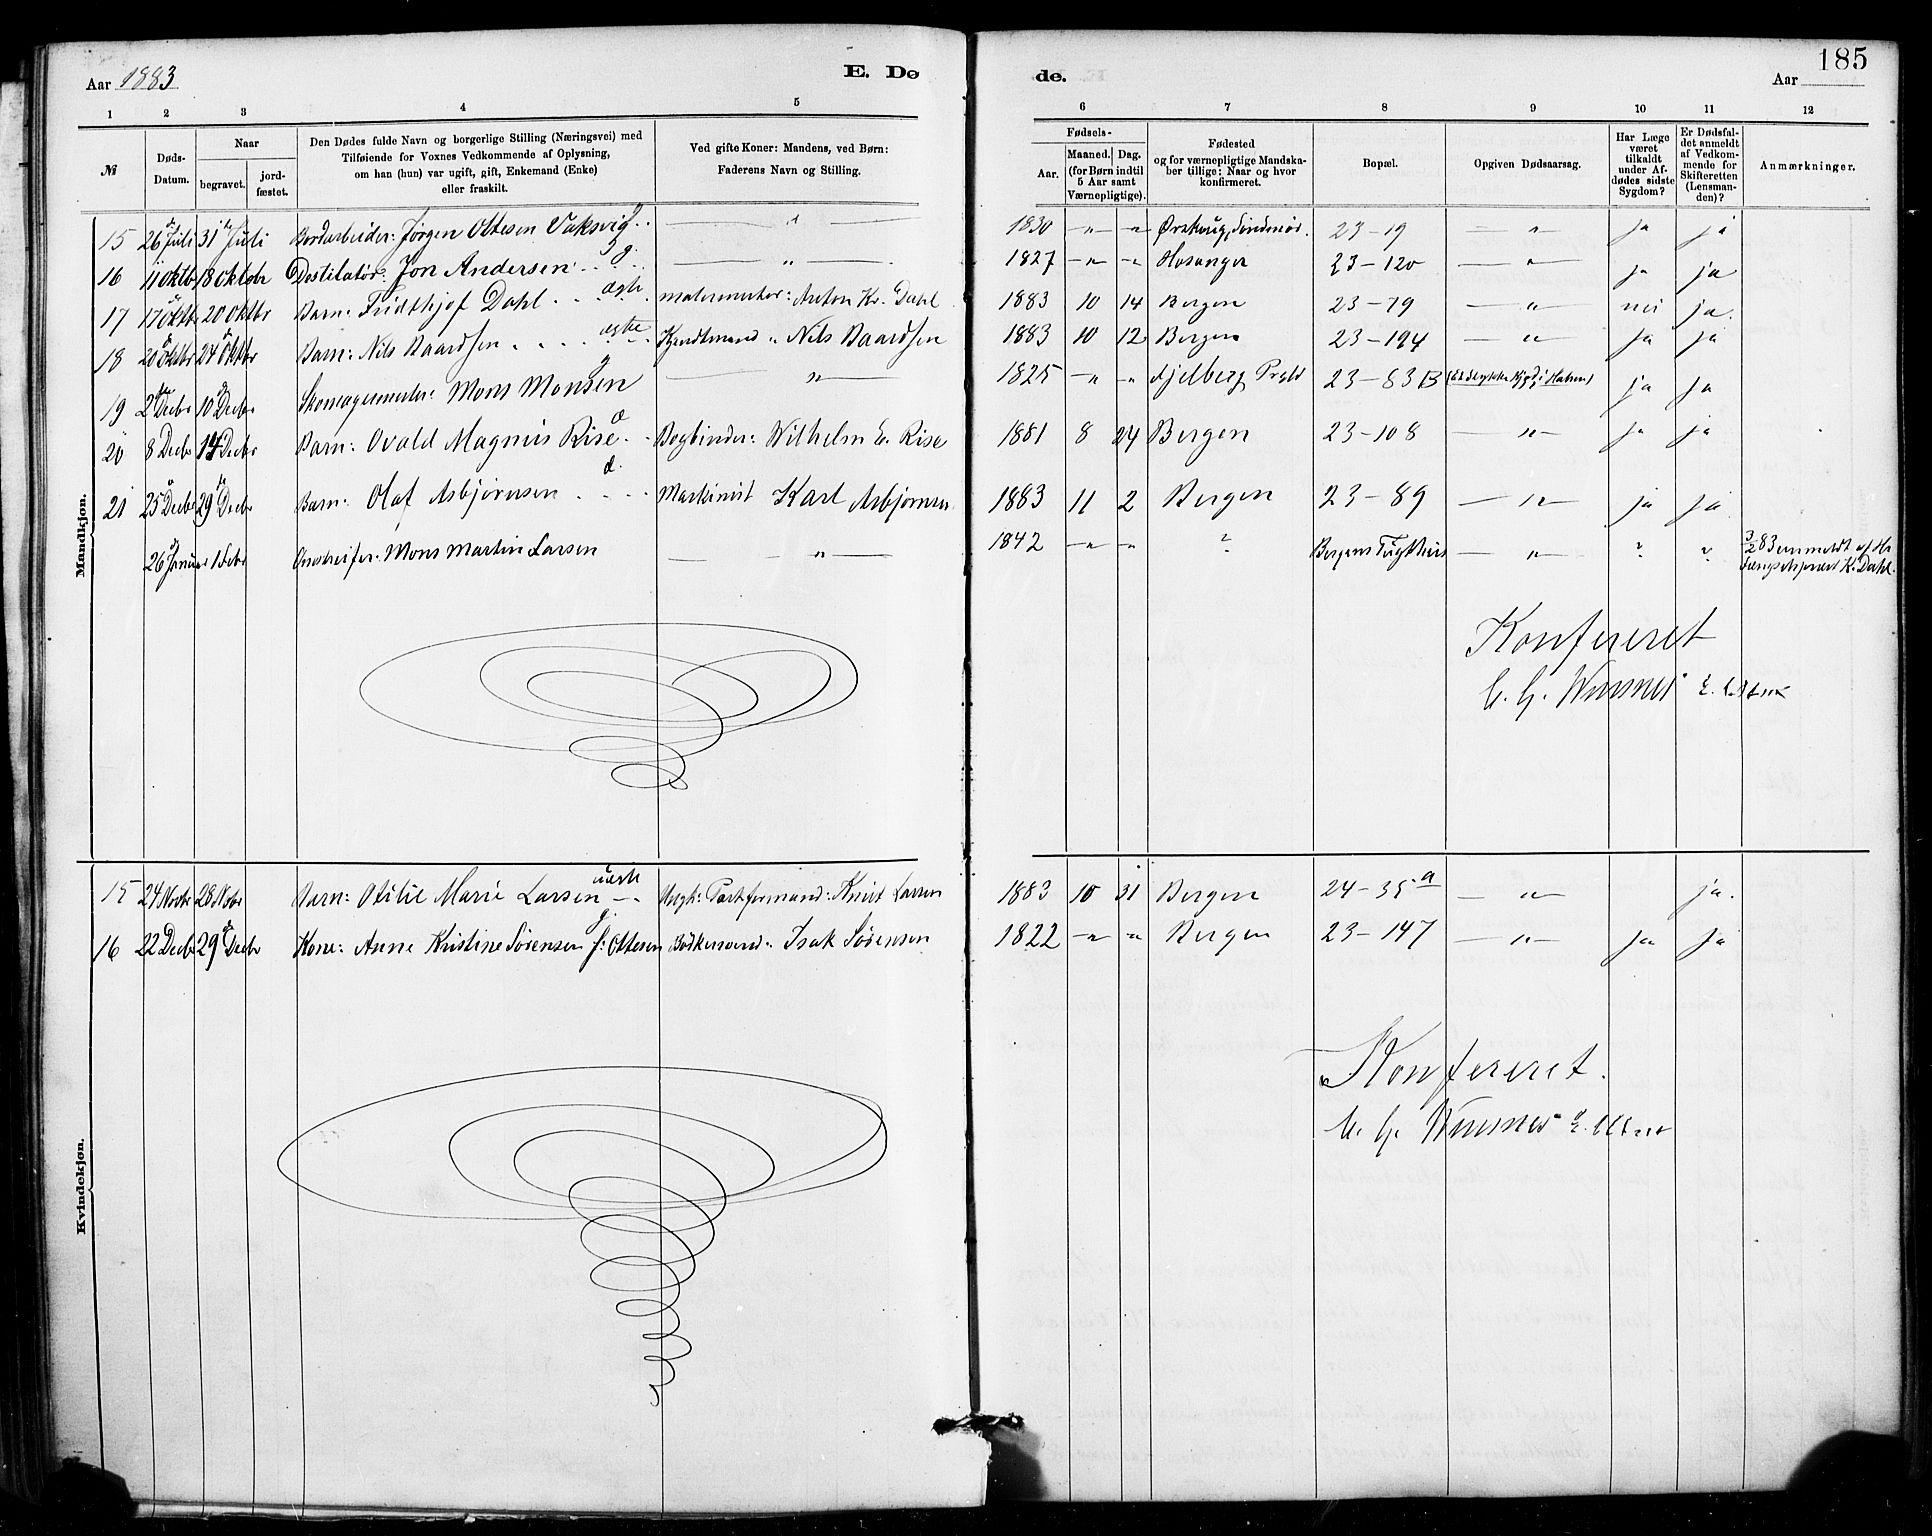 Aar 1883
E. Dø
de.
185
Aar
1 2 3 4 5 6 7 8 9 10 11 12
№
Døds-
Datum.
Naar
begravet.
jord-
fæstet.
Den Dødes fulde Navn og borgerlige Stilling (Næringsvei) med
Tilføiende for Voxnes Vedkommende af Oplysning,
om han (hun) var ugift, gift, Enkemand (Enke)
eller fraskilt.
Ved gifte Koner: Mandens, ved Børn:
Faderens Navn og Stilling.
Fødsels-
Aar.
Maaned. Dag.
(for Børn indtil
5 Aar samt
Værnepligtige).
Fødested
og for værnepligtige Mandska-
ber tillige: Naar og hvor
konfirmeret.
Bopæl.
Opgiven Dødsaarsag.
Har Læge
været
tilkaldt
under Af-
dødes sidste
Sygdom?
Er Dødsfal-
det anmeldt
af Vedkom-
mende for
Skifteretten
(Lensman-
den)?
Anmærkninger.
Mandkjøn.
15 26 Juli 31 Juli Bordarbeider: Jørgen Ottesen Vaksvig g. — " — 1830 — " — Ørskoug, Søndmør. 23-19 — " — ja ja
16 11 Oktbr 18 Oktobr Destilatør: Jon Andersen g. — " — 1827 — " — Hosanger 23-120 — " — ja ja
17 17 Oktbr 20 Oktbr Barn: Fridthjof Dahl ægte malermester: Anton Kr. Dahl 1883 10 14 Bergen 23-79 — " — nei ja.
18 20 Oktbr 24 Oktbr Barn: Nils Baardsen ægte Nils Baardsen 1883 10 12 Bergen 23-194 — " — ja ja
19 2 Decbr 10 Decbr Skomagermester: Mons Monsen g — " — 1825 — " — Fjelberg Prgld 23-83 B ja ja
20 8 Decbr 14 Decbr Barn: Ovald Magnus Rise Bogbinder: Wilhelm E. Rise 1881 8 24 Bergen 23-108 — " — ja ja
21 25 Decbr 29 Decbr Barn: Olaf Asbjørnsen Maskinist Karl Asbjørnsen 1883 11 2 Bergen 23-89 — " — ja ja
26 Januar 1 Febr Mons Martin Larsen — " — 1842 — " — ? Bergens Tugthus — " — ? ? 3/2 83 anmeldt af Hr
Fængselspræst K. Dahl.
Konfereret
Kvindekjøn.
15 24 Novbr 28 Novbr Barn: Otilie Marie Larsen uægte Ungk: Knud Larsen 1883 10 31 Bergen 24-35 a — " — ja.
16 22 Decbr 29 Decbr Kone: Anne Kristine Sørensen f: Ottesen Bødkersvend: Isak Sørensen 1822 — " — Bergen 23-147 — " — ja ja
Konfereret.